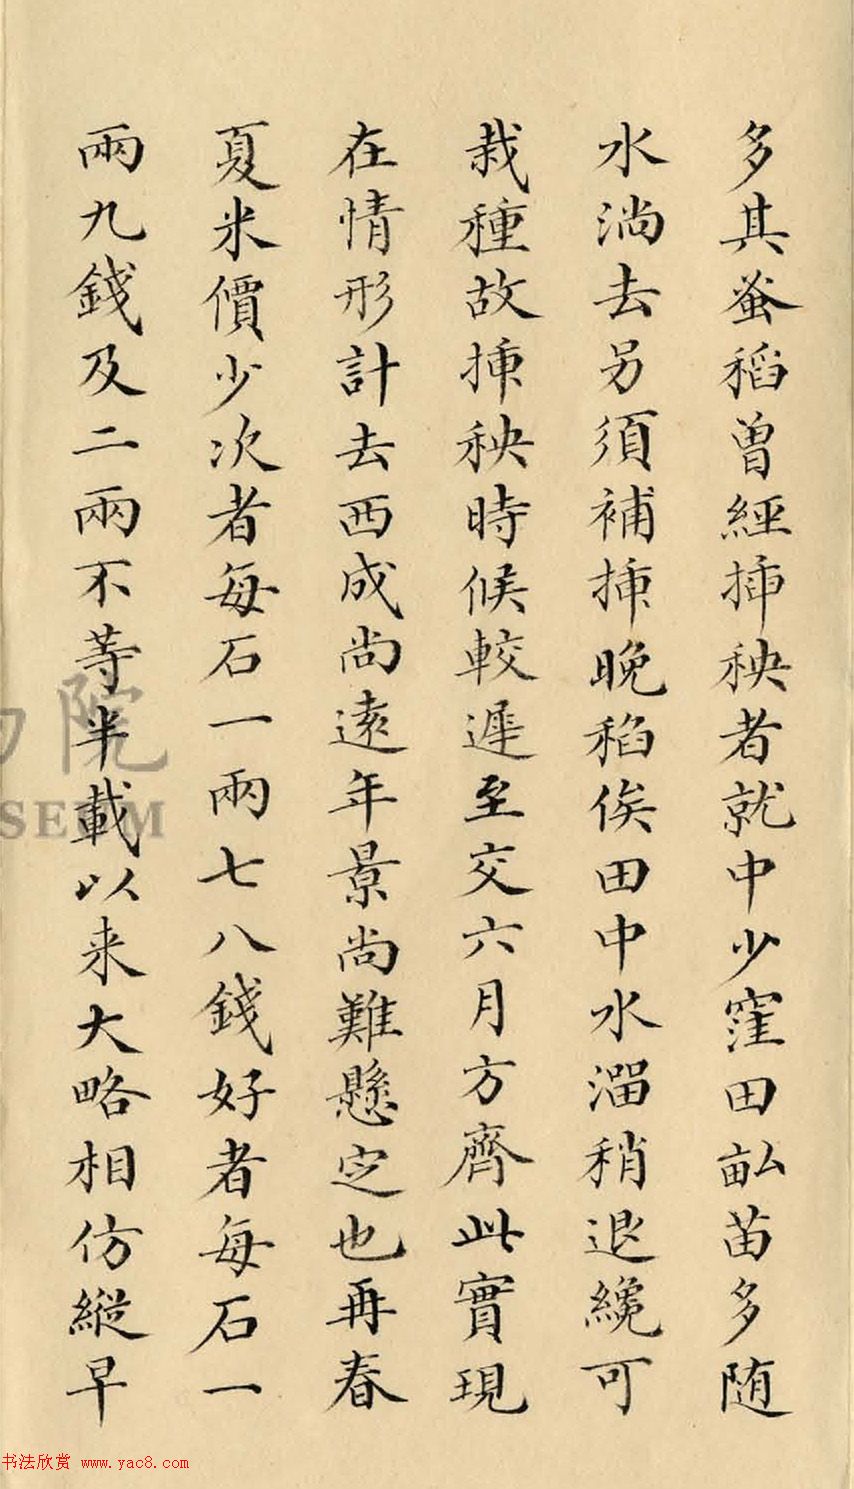 多其蚤稻曾經揷秧者就中少窪田畆苗多随
水淌去另須補揷晩稻俟田中水溜稍退纔可
栽種故揷秧時候較遲至交六月方齊此實現
在情形計去西成尚遠年景尚難懸定也再春
夏米價少次者每石一兩七八錢好者每石一
兩九錢及二兩不等半載以来大略相仿縱早
院
SEUM
书法欣赏 www.yac8.com